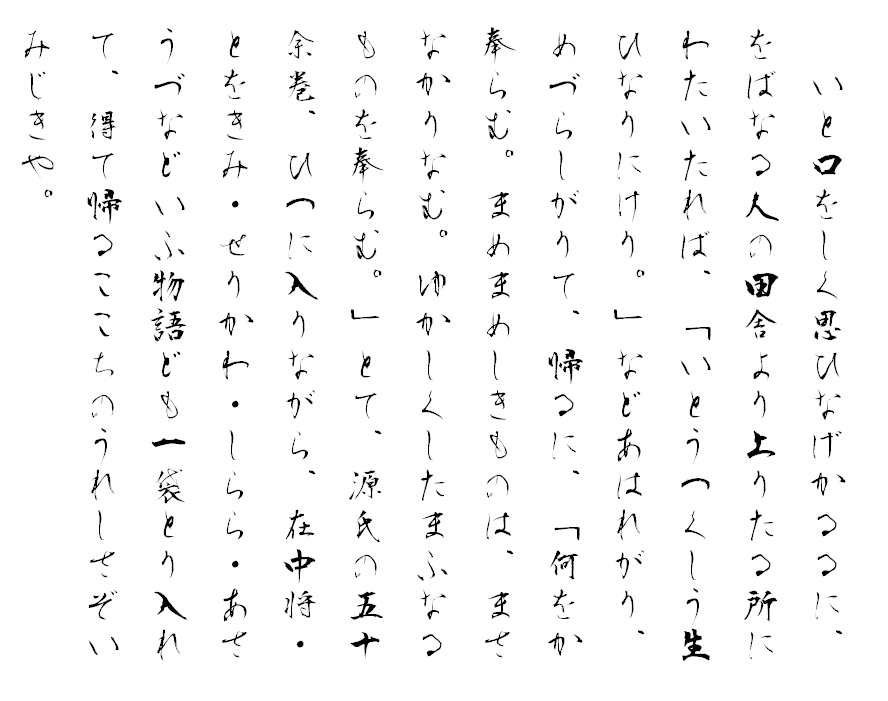 いと口をしく思ひなげかるるに、
をばなる人の田舎より上りたる所に
わたいたれば、「いとうつくしう生
ひなりにけり。」などあはれがり、
めづらしがりて、帰るに、「何をか
奉らむ。まめまめしきものは、まさ
なかりなむ。ゆかしくしたまふなる
ものを奉らむ。」とて、源氏の五十
余巻、ひつに入りながら、在中将・
とをきみ・せりかわ・しらら・あさ
うづなどいふ物語ども一袋とり入れ
て、得て帰るここちのうれしさぞい
みじきや。